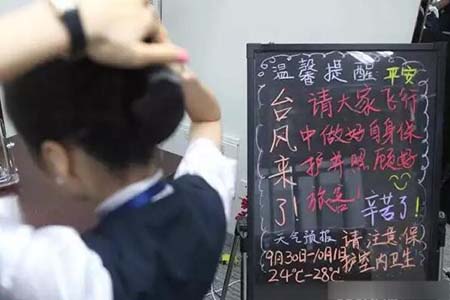 温馨提醒 平安
台风来了!
请大家飞行
中做好自身保
护并照顾好
旅客! 辛苦了!
天气预报
9月30日-10月1日
24℃-28℃
请注意保
护室内卫生